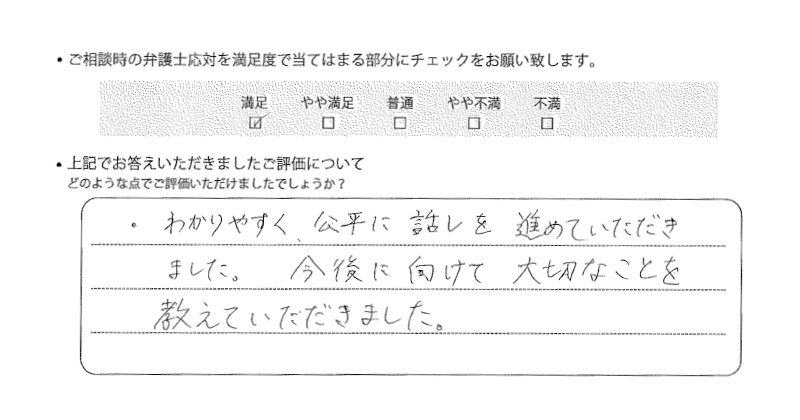 ・ご相談時の弁護士応対を満足度で当てはまる部分にチェックをお願い致します。
満足 やや満足 普通 やや不満 不満
☑ □ □ □ □
・上記でお答えいただきましたご評価について
どのような点でご評価いただけましたでしょうか？
・わかりやすく、公平に話しを進めていただき
ました。 今後に向けて大切なことを
教えていただきました。